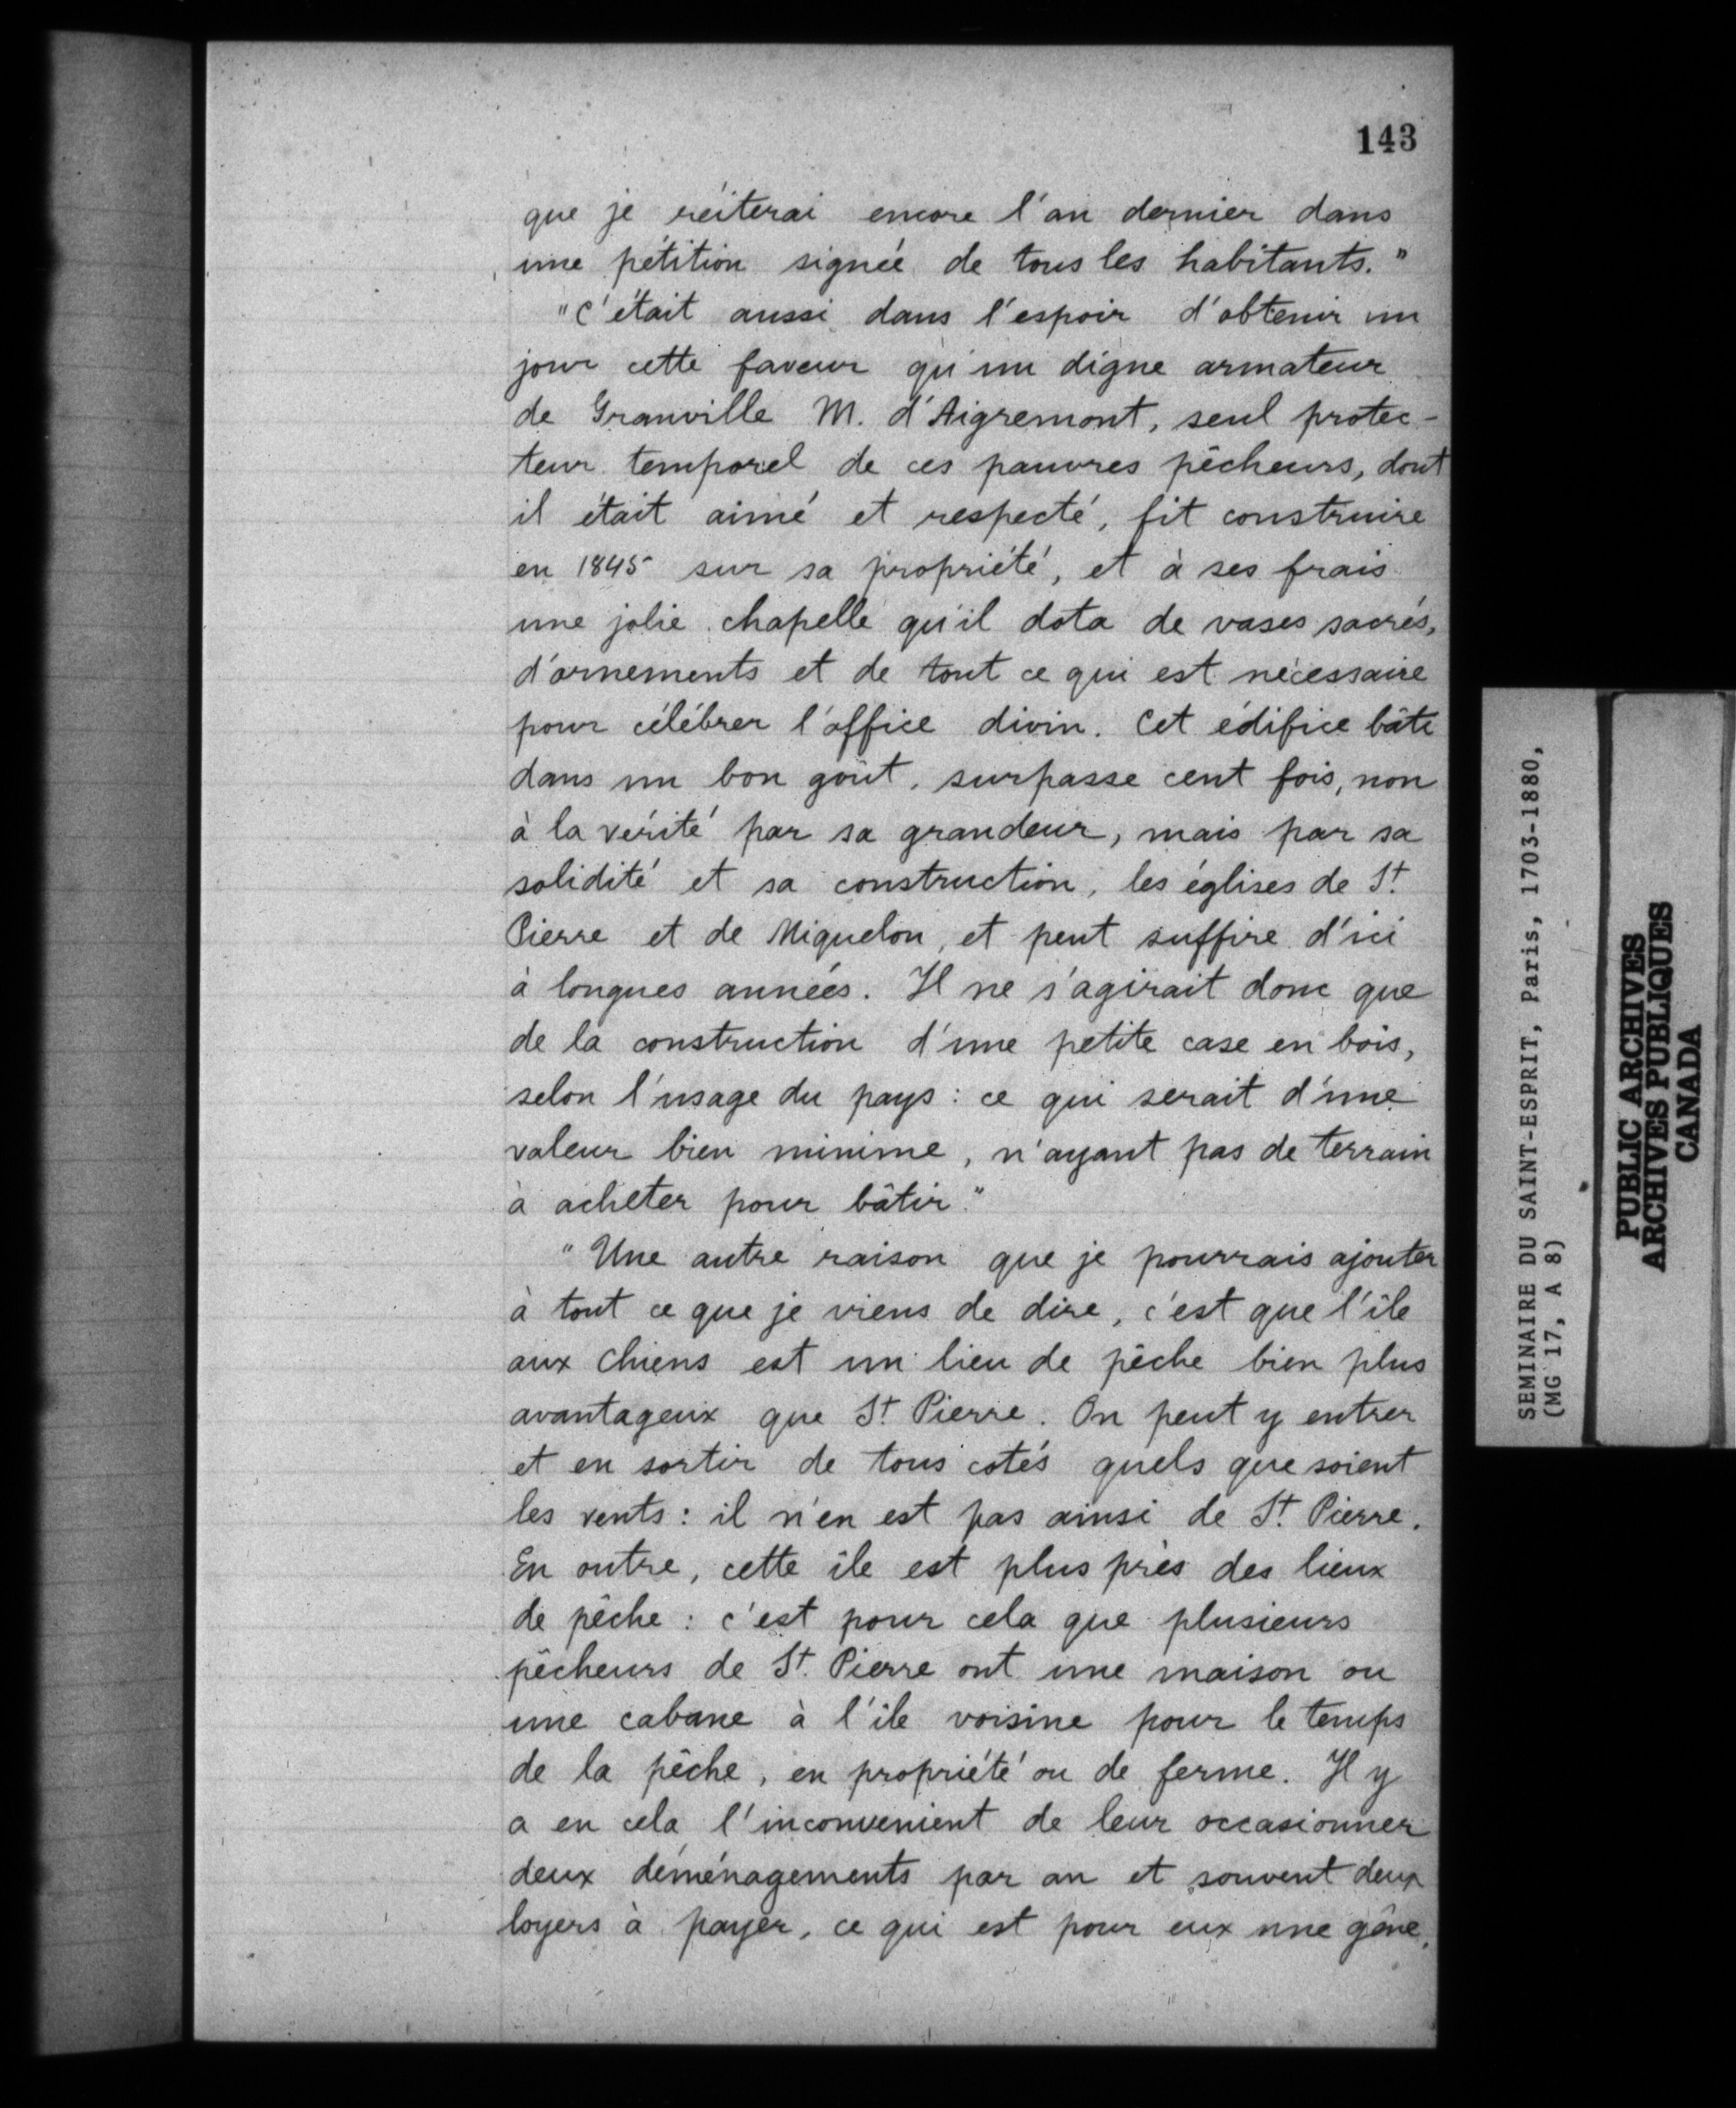 143
que je réiterai encore l'an dernier dans
une pétition signée de tous les habitants."
"C'était aussi dans l'espoir d'obtenir un
jour cette faveur qu'un digne armateur
de Granville M. d'Aigremont, seul protec-
teur temporel de ces pauvres pêcheurs, dont
il était aimé et respecté, fit construire
en 1845 sur sa propriété, et à ses frais
une jolie chapelle qu'il dota de vases sacrés,
d'ornements et de tout ce qui est nécessaire
pour célébrer l'office divin. Cet édifice bâti
dans un bon goût, surpasse cent fois, non
à la vérité par sa grandeur, mais par sa
solidité et sa construction, les églises de St.
Pierre et de Miquelon, et peut suffire d'ici
à longues années. Il ne s'agirait donc que
de la construction d'une petite case en bois,
selon l'usage du pays : ce qui serait d'une
valeur bien minime, n'ayant pas de terrain
à acheter pour bâtir."
"Une autre raison que je pourrais ajouter
à tout ce que je viens de dire, c'est que l'île
aux Chiens est un lieu de pêche bien plus
avantageux que St Pierre. On peut y entrer
et en sortir de tous cotés quels que soient
les vents : il n'en est pas ainsi de St. Pierre.
En outre, cette île est plus près des lieux
de pêche : c'est pour cela que plusieurs
pêcheurs de St. Pierre ont une maison ou
une cabane à l'ile voisine pour le temps
de la pêche, en propriété ou de ferme. Il y
a en cela l'inconvenient de leur occasionner
deux déménagements par an et souvent deux
loyers à payer, ce qui est pour eux une gêne,
SEMINAIRE DU SAINT-ESPRIT, Paris, 1703-1880,
(MG 17, A 8)
PUBLIC ARCHIVES
ARCHIVES PUBLIQUES
CANADA